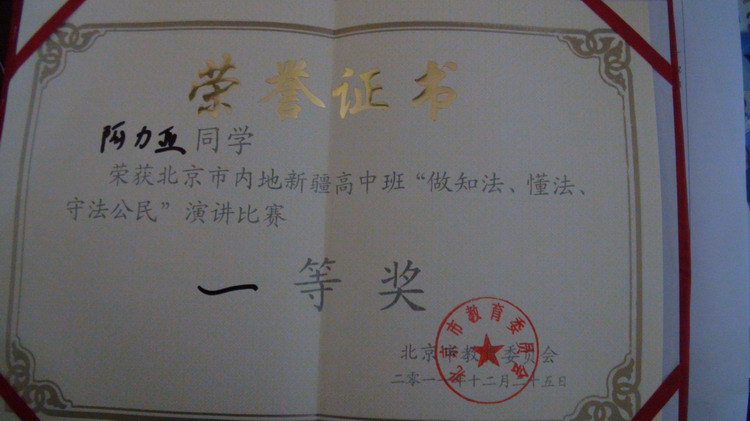 荣誉证书
阿力亚同学
荣获北京市内地新疆高中班“做知法、懂法、
守法公民”演讲比赛
一等奖
北京市教育委员会
二零一一年十二月二十五日
北京市教育委员会